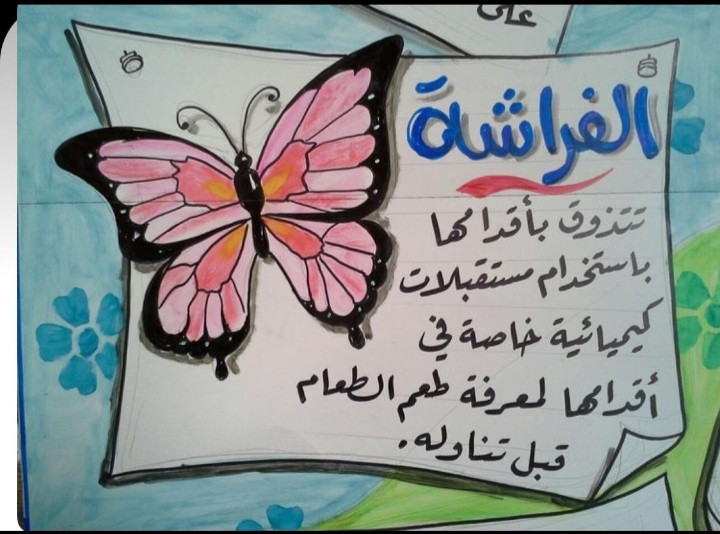 على
الفراشة
تتذوق بأقدامها
باستخدام مستقبلات
كيميائية خاصة في
أقدامها لمعرفة طعم الطعام
قبل تناوله.